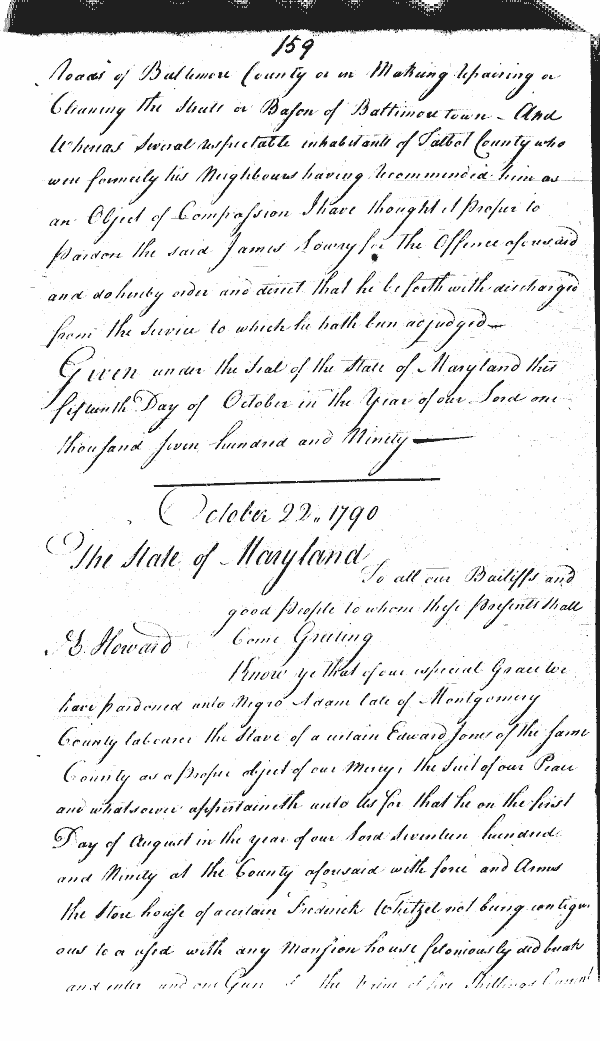 159
Roads of Baltimore County or in Making repairing or
Cleaning the Streets or Bason of Baltimore town – And
Whereas Several respectable inhabitants of Talbot County who
were formerly his Neighbours having recommended him as
an Object of Compassion I have thought it proper to
pardon the said James Lowry for the Offence aforesaid
and do hereby order and direct that he be forthwith discharged
from the service to which he hath been adjudged—
Given under the Seal of the State of Maryland this
fifteenth Day of October in the Year of our Lord one
thousand seven hundred and Ninety—
October 22,, 1790
The State of Maryland
To all our Bailiffs and
good people to whom these presents shall
Come Greeting
Howard
Know ye that of our especial Grace We
have pardoned unto Negro Adam late of Montgomery
County labourer the Slave of a certain Edward Jones of the same
County as a proper object of our Mercy, the Suit of our Peace
and whatsoever appertaineth unto Us for that he on the first
Day of August in the year of our Lord Seventeen hundred
and Ninety at the County aforesaid with force and Arms
the Store house of a certain Frederick Whitzel not being contigu
ous to a used with any Mansion house feloniously did break
and enter and one Gun of the five Shillings